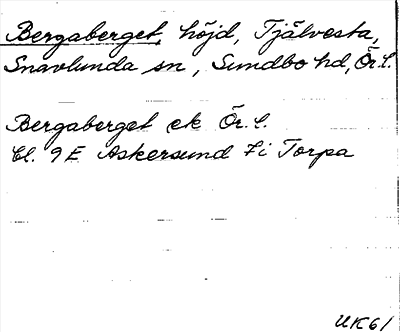 Bergaberget, höjd, Tjälvesta,
Snavlunda sn, Sundbo hd, Ör. l.
Bergaberget ek Ör. l.
Bl. 9E Askersund 7i Torpa
UK61